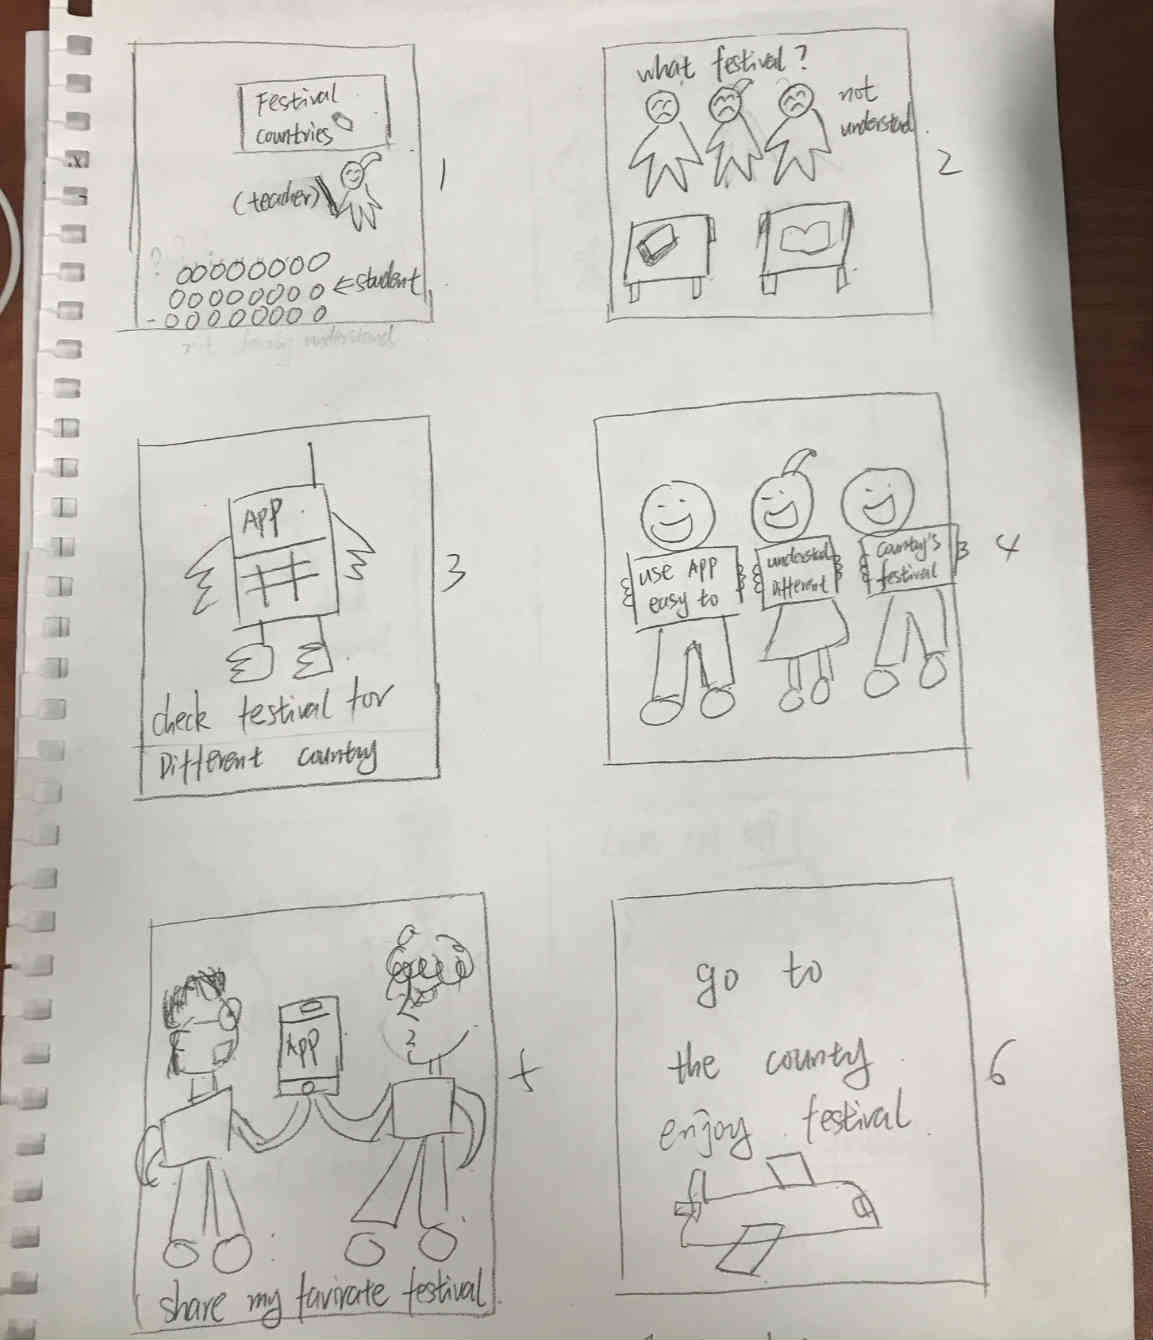 Festival
countries
(teacher)
← student
1
what festival?
not
understand
2
APP
check festival for
Different country
3
use APP
easy to
understand
different
country's
festival
4
APP
share my favivorte festival
go to
the country
enjoy festival
6